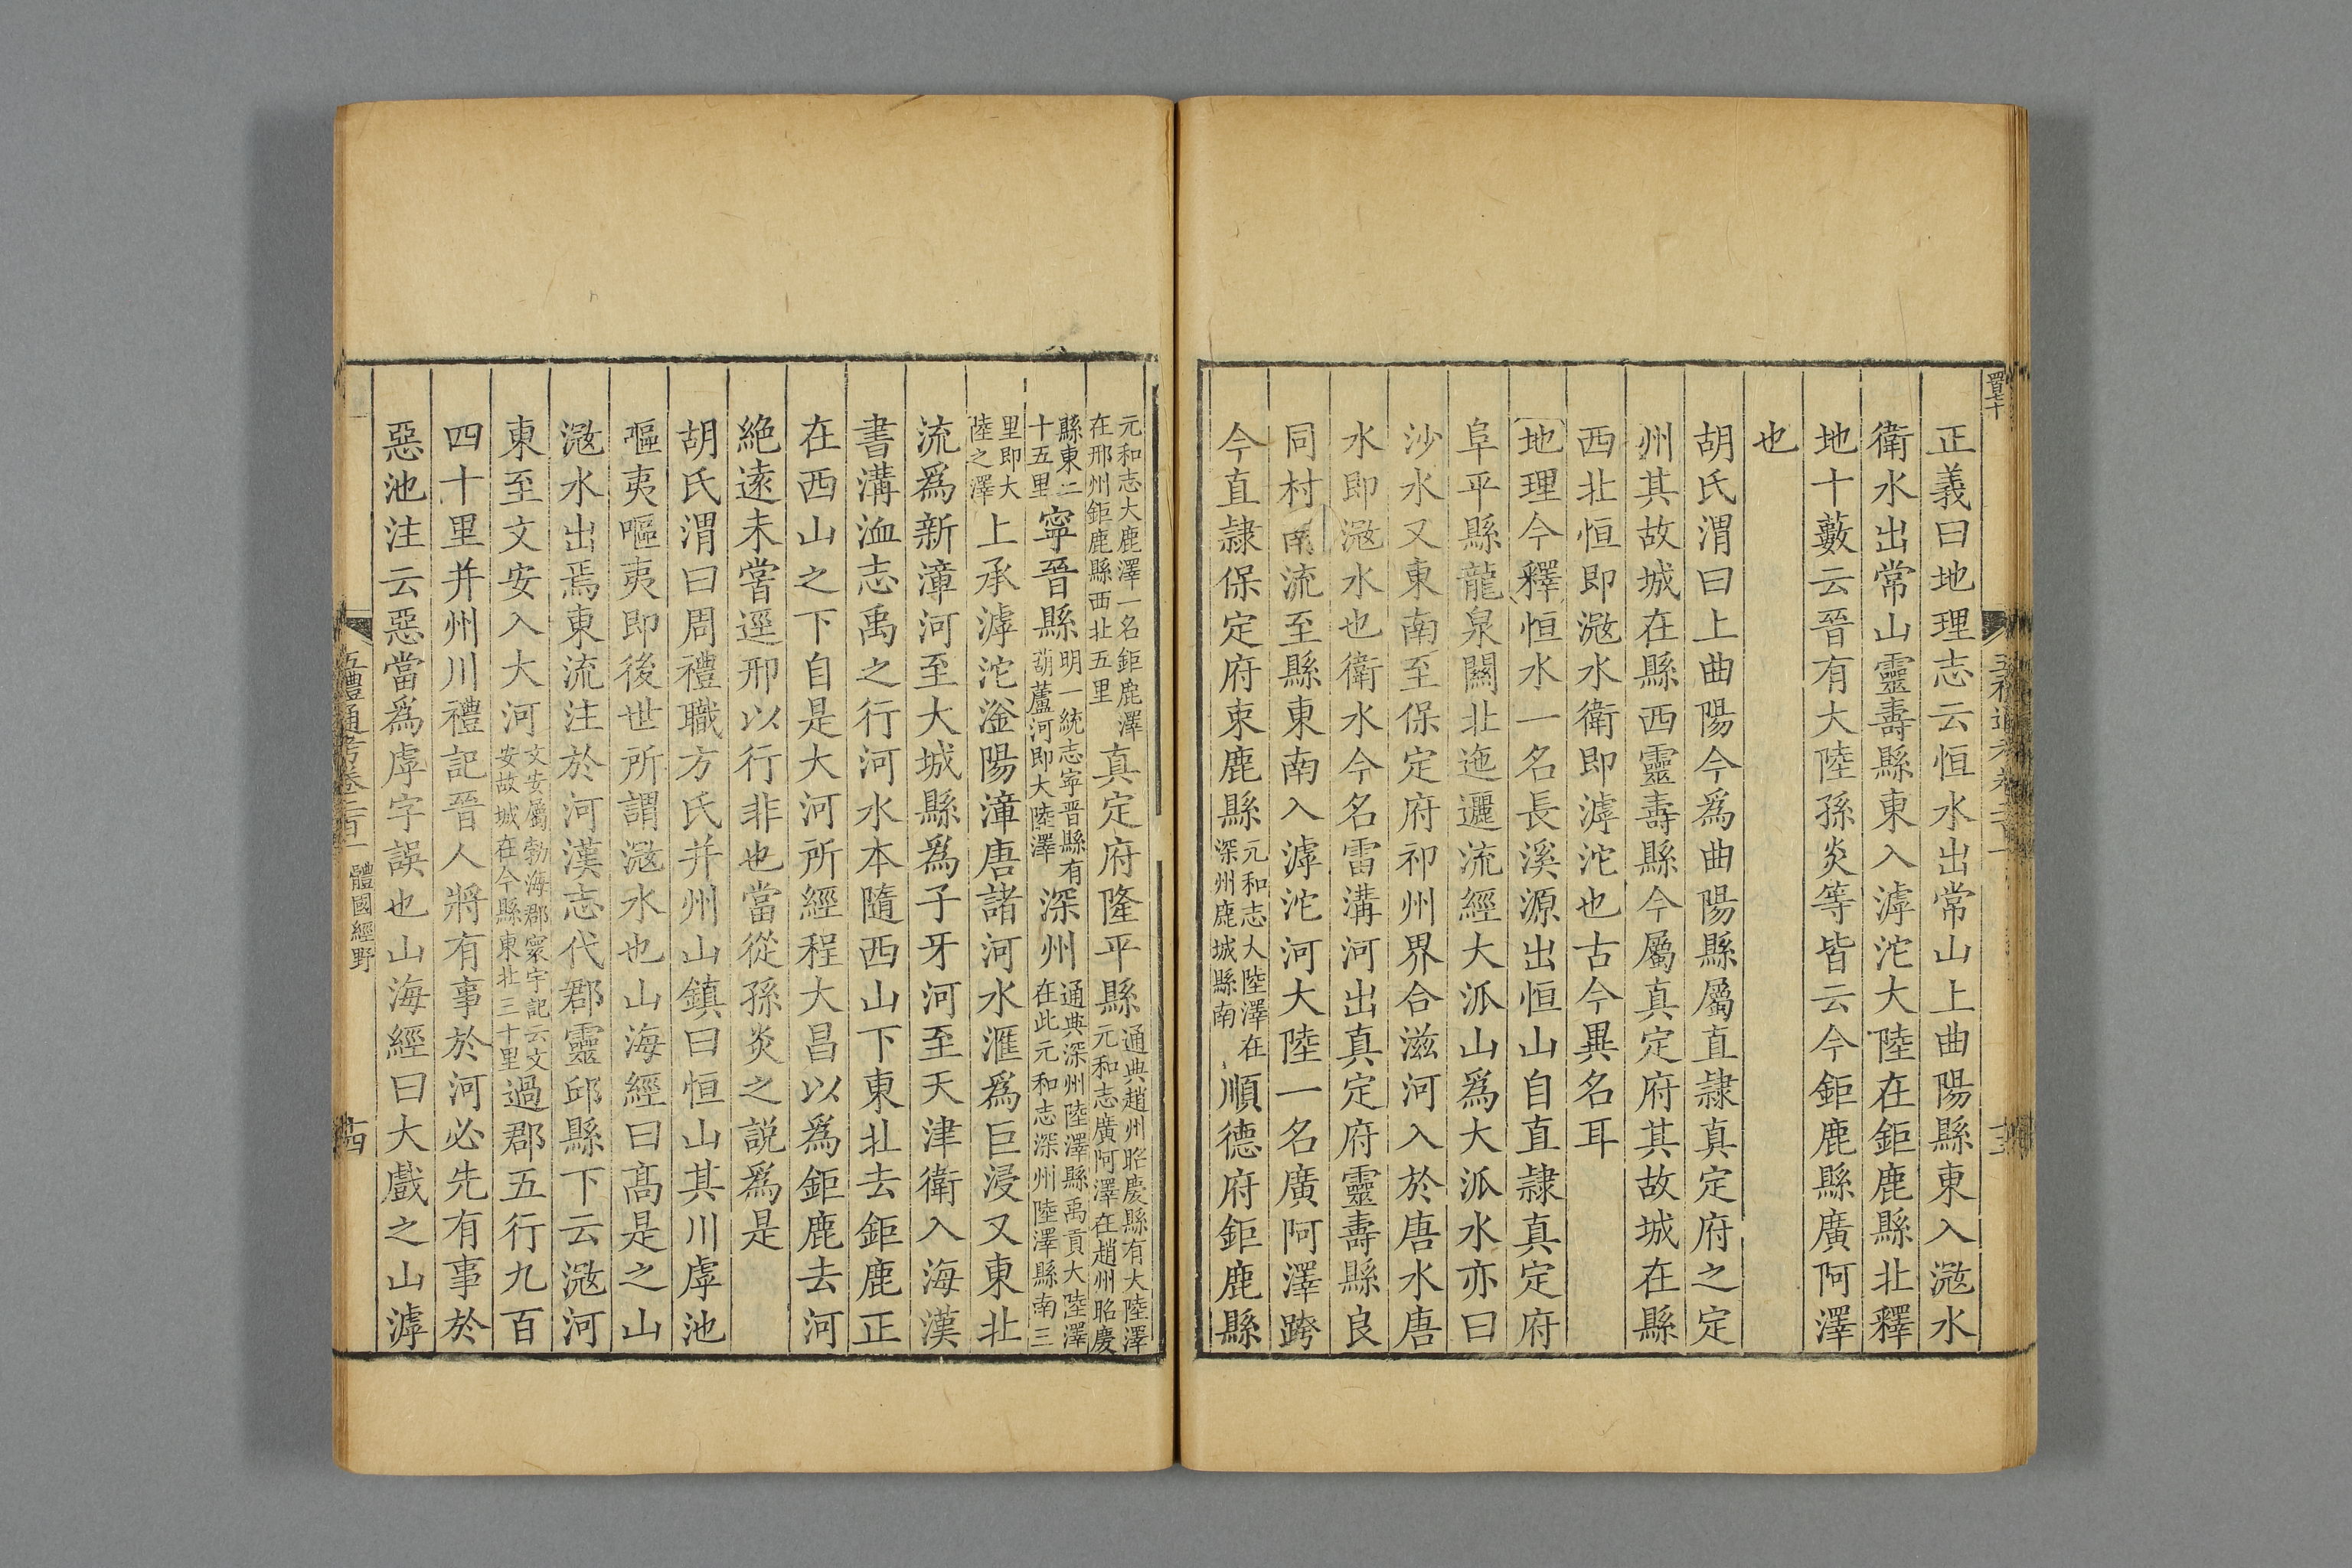 正義曰地理志云恒水出常山上曲陽縣東入滱水
衛水出常山靈壽縣東入滹沱大陸在鉅鹿縣北釋
地十藪云晉有大陸孫炎等皆云今鉅鹿縣廣阿澤
也
胡氏渭曰上曲陽今爲曲陽縣屬直隷真定府之定
州其故城在縣西靈壽縣今屬真定府其故城在縣
西北恒即滱水衛即滹沱也古今異名耳
地理今釋恒水一名長溪源出恒山自直隷真定府
阜平縣龍泉關北迤邐流經大派山爲大派水亦曰
沙水又東南至保定府祁州界合滋河入於唐水唐
水即滱水也衛水今名雷溝河出真定府靈壽縣良
同村南流至縣東南入滹沱河大陸一名廣阿澤跨
今直隷保定府束鹿縣元和志大陸澤在深州鹿城縣南順德府鉅鹿縣
元和志大鹿澤一名鉅鹿澤在邢州鉅鹿縣西北五里真定府隆平縣通典趙州昭慶縣有大陸澤元和志廣阿澤在趙州昭慶
縣東二十五里寧晉縣明一統志寧晋縣有葫蘆河即大陸澤深州通典深州陸澤縣禹貢大陸澤在此元和志深州陸澤縣南三
里即大陸之澤上承滹沱滏陽漳唐諸河水滙爲巨浸又東北
流爲新漳河至大城縣爲子牙河至天津衛入海漢
書溝洫志禹之行河水本隨西山下東北去鉅鹿正
在西山之下自是大河所經程大昌以爲鉅鹿去河
絶遠未嘗逕邢以行非也當從孫炎之説爲是
胡氏渭曰周禮職方氏并州山鎮曰恒山其川虖池
嘔夷嘔夷即後世所謂滱水也山海經曰髙是之山
滱水出焉東流注於河漢志代郡靈邱縣下云滱河
東至文安入大河文安屬勃海郡寰宇記云文安故城在今縣東北三十里過郡五行九百
四十里并州川禮記晉人將有事於河必先有事於
惡池注云惡當爲虖字誤也山海經曰大戲之山滹
五禮通考卷二百一 體國經野 十四